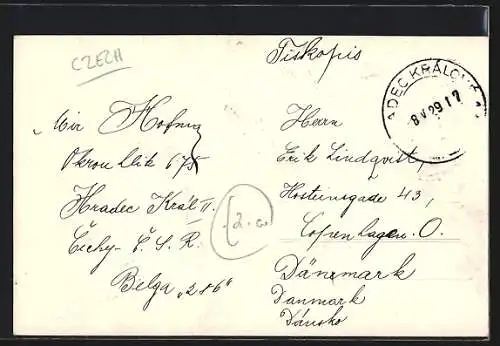 CZECH
Tiskopis
ADEC KRÁLOVÉ
8 V 29 17
Mir Hofman
Okrouhlík 675
Hradec Král II.
Čechy - Č. S. R.
Belga "286"
2.-
Herrn
Erik Lindqvist,
Hosteinsgade 43,
Copenhagen. O.
Dänemark
Danmark
Dánsko